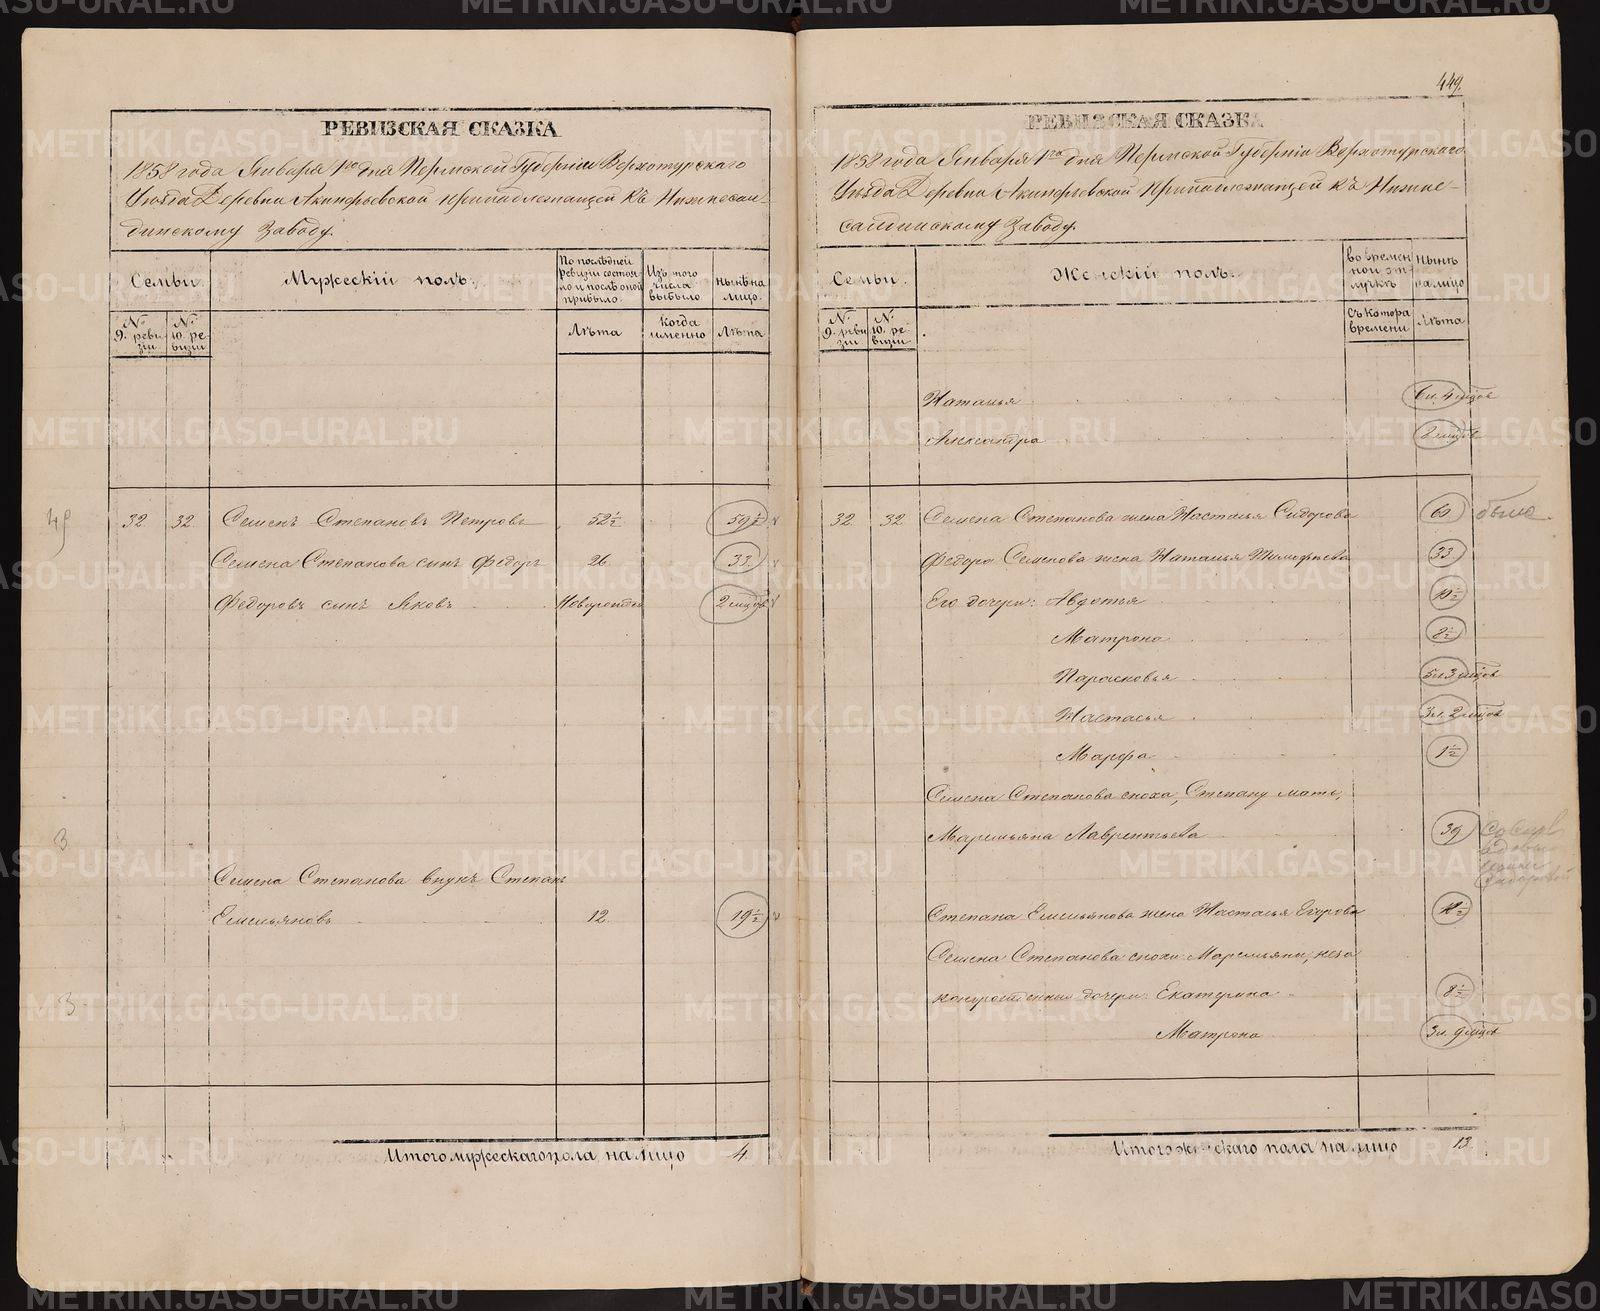 449.
РЕВИЗСКАЯ СКАЗКА
1858 года Января 1го дня Пермской Губерніи Верхотурскаго
Уѣзда Деревни Акинфьевской принадлежащей къ Нижнесал-
динскому заводу.
Семьи.
Мужескій полъ.
По послѣдней ревизіи состояло и послѣ оной прибыло.
Изъ того числа выбыло
Нынѣ на лицо.
№ 9. ревизіи
№ 10. ревизіи
Лѣта
Когда именно
Лѣта
49
32 32. Семенъ Степановъ Петровъ 52½ 59½
Семена Степанова сынъ Федоръ 26. 33.
Федоровъ сынъ Яковъ Новорожден 2 мцовъ
3
Семена Степанова внукъ Степанъ
Емельяновъ 12. 19½
3
Итого мужескаго пола на лицо 4.
РЕВИЗСКАЯ СКАЗКА
1858 года Января 1го дня Пермской Губерніи Верхотурскаго
Уѣзда Деревни Акинфьевской принадлежащей къ Нижне-
салдинскому заводу.
Семьи.
Женскій полъ.
Во временной отлучкѣ
Нынѣ на лицо
№ 9. ревизіи
№ 10. ревизіи
Съ котора времени
Лѣта
Наталья 6 л. 4 мцов
Александра 8 мцовъ
32 32 Семена Степанова жена Настасья Сидорова 61
Федора Семенова жена Наталья Тимофеева 33
Его дочери: Авдотья 10½
Матрона 8½
Парасковья 5 л 3 мцов
Настасья 3 л. 2 мцов
Марфа 1½
Семена Степанова сноха, Степану мать,
Маремьяна Лаврентьева 39
Степана Емельянова жена Настасья Егорова
Семена Степанова снохи Маремьяны, неза
коннорожденныя дочери: Екатерина 8½
Матрона 3 л. 9 мцов
Итого женскаго пола на лицо 13.
METRIKI.GASO-URAL.RU